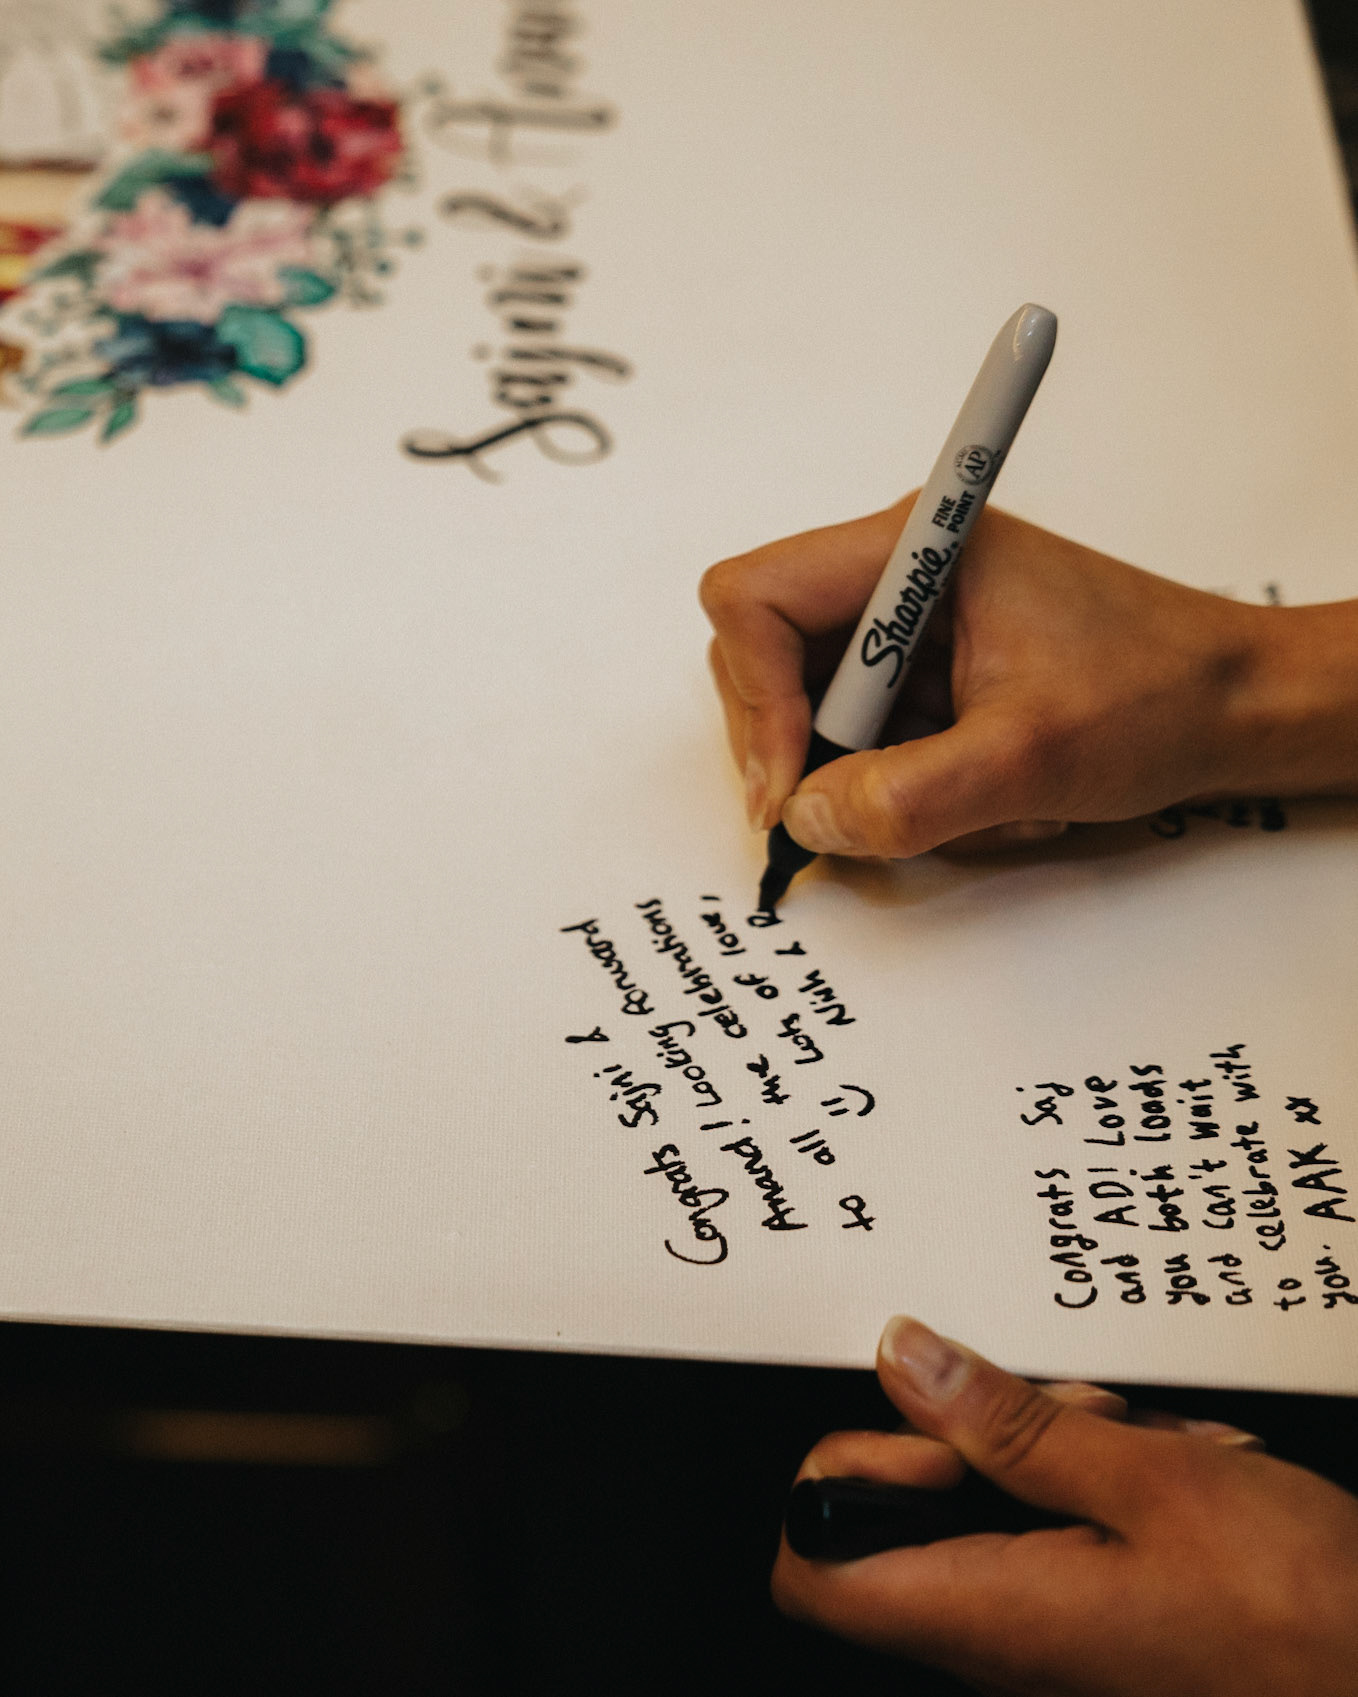 Sajni &
Sharpie
FINE
POINT
AP
Congrats Sajni &
Anand! Looking forward
to all the celebrations
Lots of love,
&
Congrats Saj
and ADI Love
you both loads
and can't wait
to celebrate with
you. AAK xx